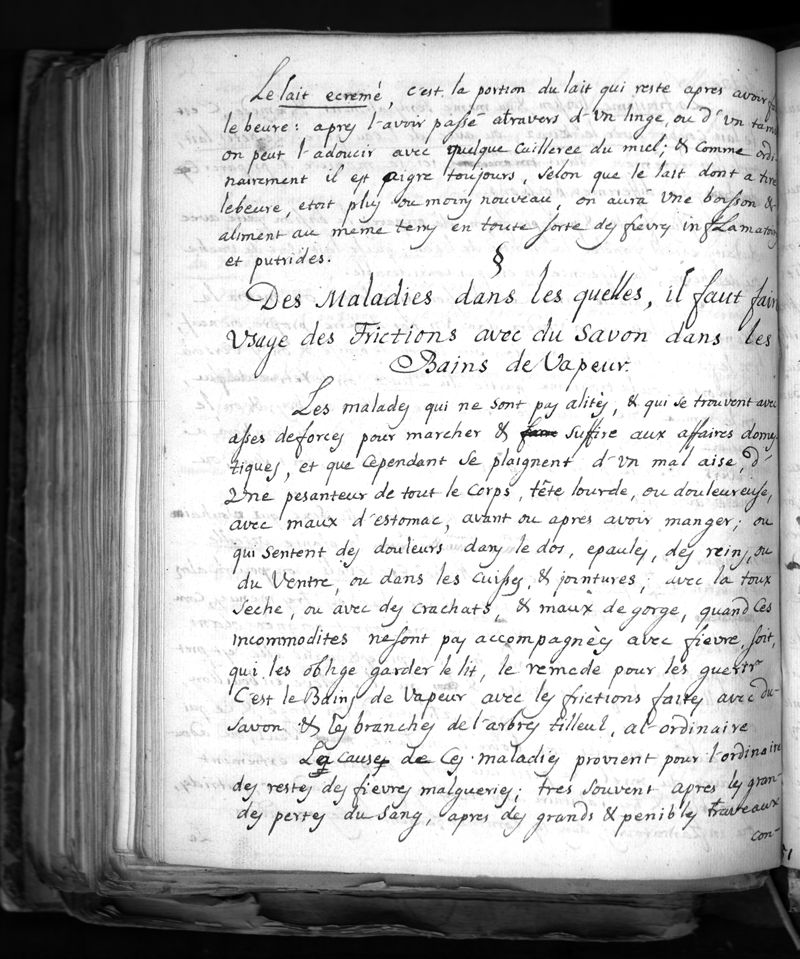 Le lait ecremé, c'est la portion du lait qui reste apres avoir
le beure: apres l'avoir passé atravers d'vn linge, ou d'vn
on peut l'adoucir avec quelque cuilleree du miel; & comme ordi
nairement il est aigre toujours, selon que le lait dont a tire
lebeure, etoit plus ou moins nouveau, on aura vne boisson &
aliment au meme tems en toute sorte des fievres inflamatoi
et putrides.
§
Des Maladies dans les quelles, il faut fair
Vsage des Frictions avec du Savon dans les
Bains de Vapeur.
Les malades qui ne sont pas alités, & qui se trouvent avec
asses deforces pour marcher & suffire aux affaires domes
tiques, et que cependant se plaignent d'vn mal aise, d'
Vne pesanteur de tout le corps, tête lourde, ou douleureuse,
avec maux d'estomac, avant ou apres avoir manger; ou
qui sentent des douleurs dans le dos, epaules, des reins, ou
du Ventre, ou dans les cuisses, & jointures; avec la toux
seche, ou avec des crachats, & maux de gorge, quand ces
incommodites nesont pas accompagnées avec fievre, soit,
qui les oblige garder le lit, le remede pour les guerir
C'est le Bains de Vapeur avec les frictions faites avec du
savon & les branches de l'arbres tilleul, al'ordinaire
Les causes de ces maladies provient pour l'ordinaire
des restes des fievres malgueries; tres souvent apres les gran-
des pertes du Sang, apres des grands & penibles traveaux
con-